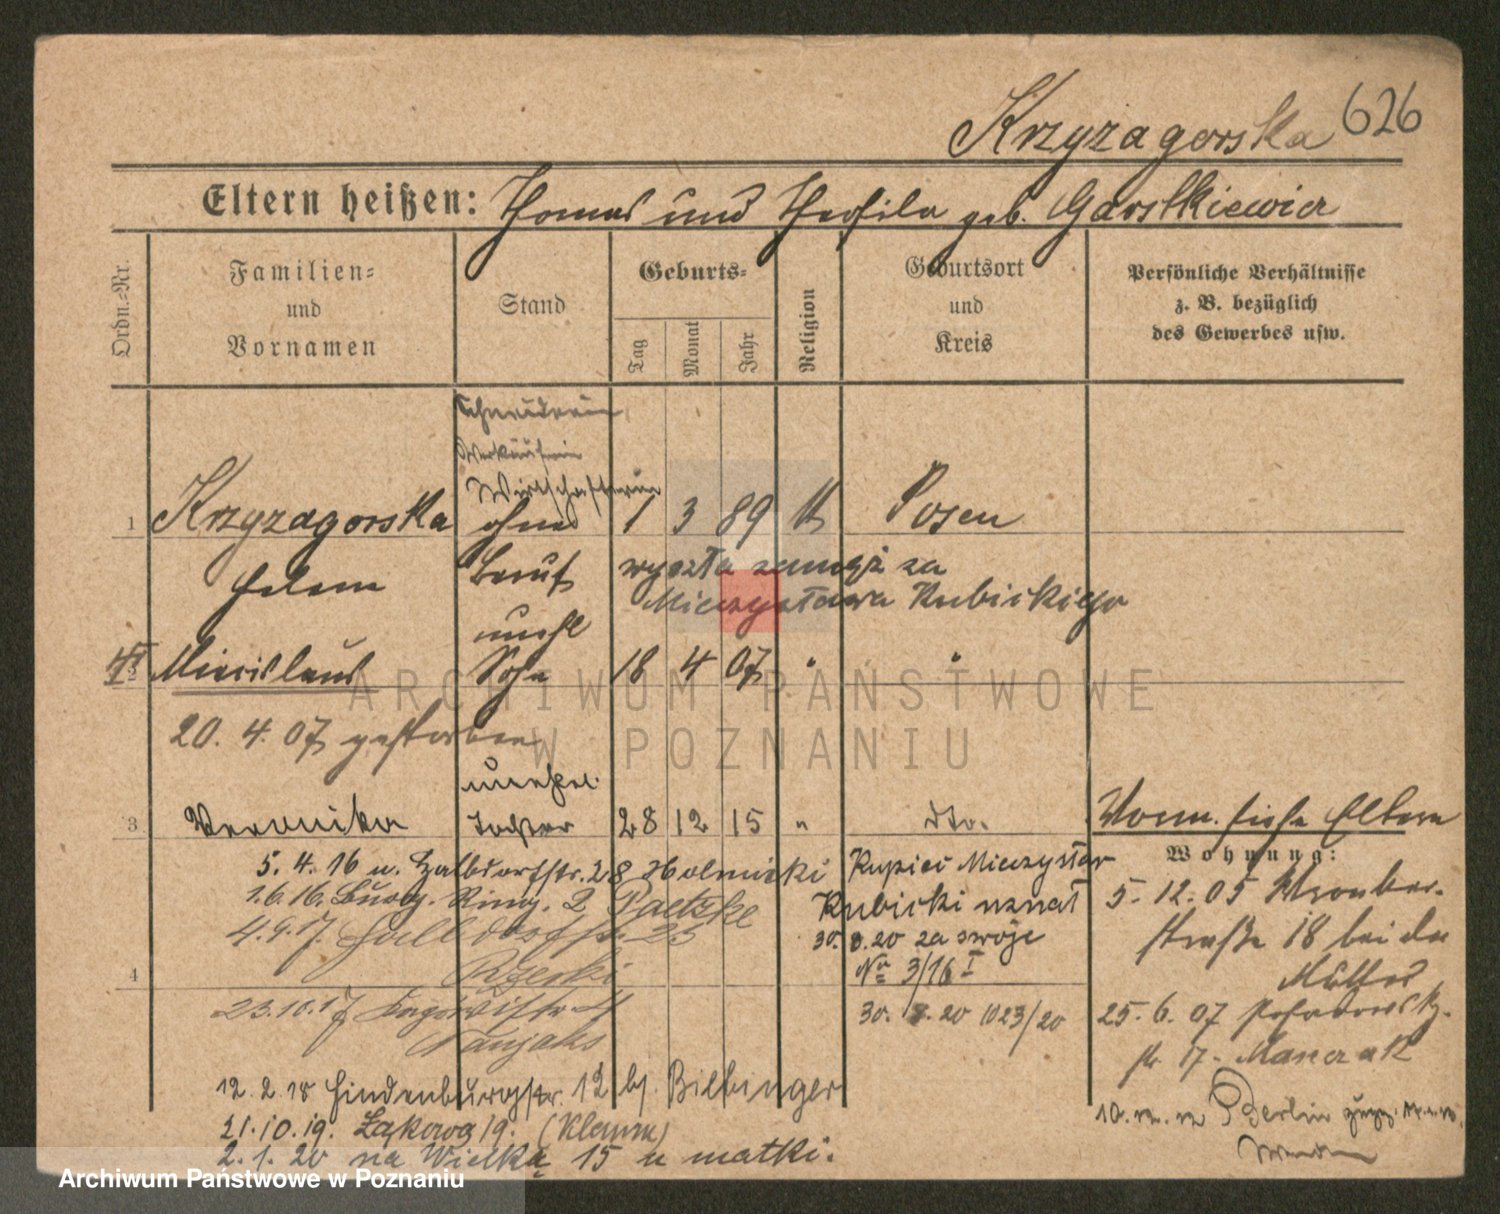 Krzyzagorska 626
Eltern heißen: Thomas und Theofila geb. Garstkiewicz
Ordn.-Nr.
Familien-
und
Vornamen
Stand
Geburts-
Tag
Monat
Jahr
Religion
Geburtsort
und
Kreis
Persönliche Verhältnisse
z. B. bezüglich
des Gewerbes usw.
Schneiderin
Verkäuferin
Wirtschafterin
1 Krzyzagorska ohne 1 3 89 K Posen
Helene Beruf wyszła zamąż za
Mieczysława Kubickiego
unehl
2 Miecislaus Sohn 18 4 07 " "
20. 4. 07 gestorben
unehel.
3 Veronika Tochter 28 12 15 " dto.
Vorm. siehe Eltern
Wohnung:
5. 4. 16 u. Halbdorfstr. 28 Holnicki
Kupiec Mieczysław
1.6.16. Ring. 2 Paetzke
Kubicki uznał
5. 12. 05 Wronker-
4.9.17. Halbdorfstr. 25
30. 8.20 za swoje
straße 18 bei der
Mutter
Rzepki
No 3/16 I
4
23.10.17
30. 8. 20 1023/20
25. 6. 07
str 17. Manczak
12. 2. 18 Hindenburgstr. 12 bj. Bilbinger
10. Berlin
21.10.19. Łąkowa 19. (Klamm)
2. 1. 20 na Wielką 15 u matki.
ARCHIWUM PAŃSTWOWE
W POZNANIU
Archiwum Państwowe w Poznaniu